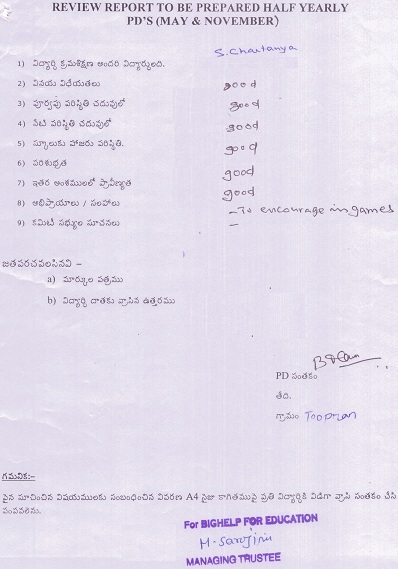 REVIEW REPORT TO BE PREPARED HALF YEARLY
PD'S (MAY & NOVEMBER)
S. Chaitanya
1) విద్యార్థి క్రమశిక్షణ అందరి విద్యార్థులది.
2) వినయ విధేయతలు good
3) పూర్వపు పరిస్థితి చదువులో good
4) నేటి పరిస్థితి చదువులో good
5) స్కూలుకు హాజరు పరిస్థితి. good
6) పరిశుభ్రత good
7) ఇతర అంశములలో ప్రావీణ్యత good
8) అభిప్రాయాలు / సలహాలు - To encourage in games
9) కమిటి సభ్యుల సూచనలు -
జతపరచవలసినవి –
a) మార్కుల పత్రము
b) విద్యార్థి దాతకు వ్రాసిన ఉత్తరము
PD సంతకం
తేది.
గ్రామం Toopran
గమనిక:-
పైన సూచించిన విషయములకు సంబంధించిన వివరణ A4 సైజు కాగితముపై ప్రతి విద్యార్థికి విడిగా వ్రాసి సంతకం చేసి
పంపవలెను.
For BIGHELP FOR EDUCATION
M. Sarojini
MANAGING TRUSTEE